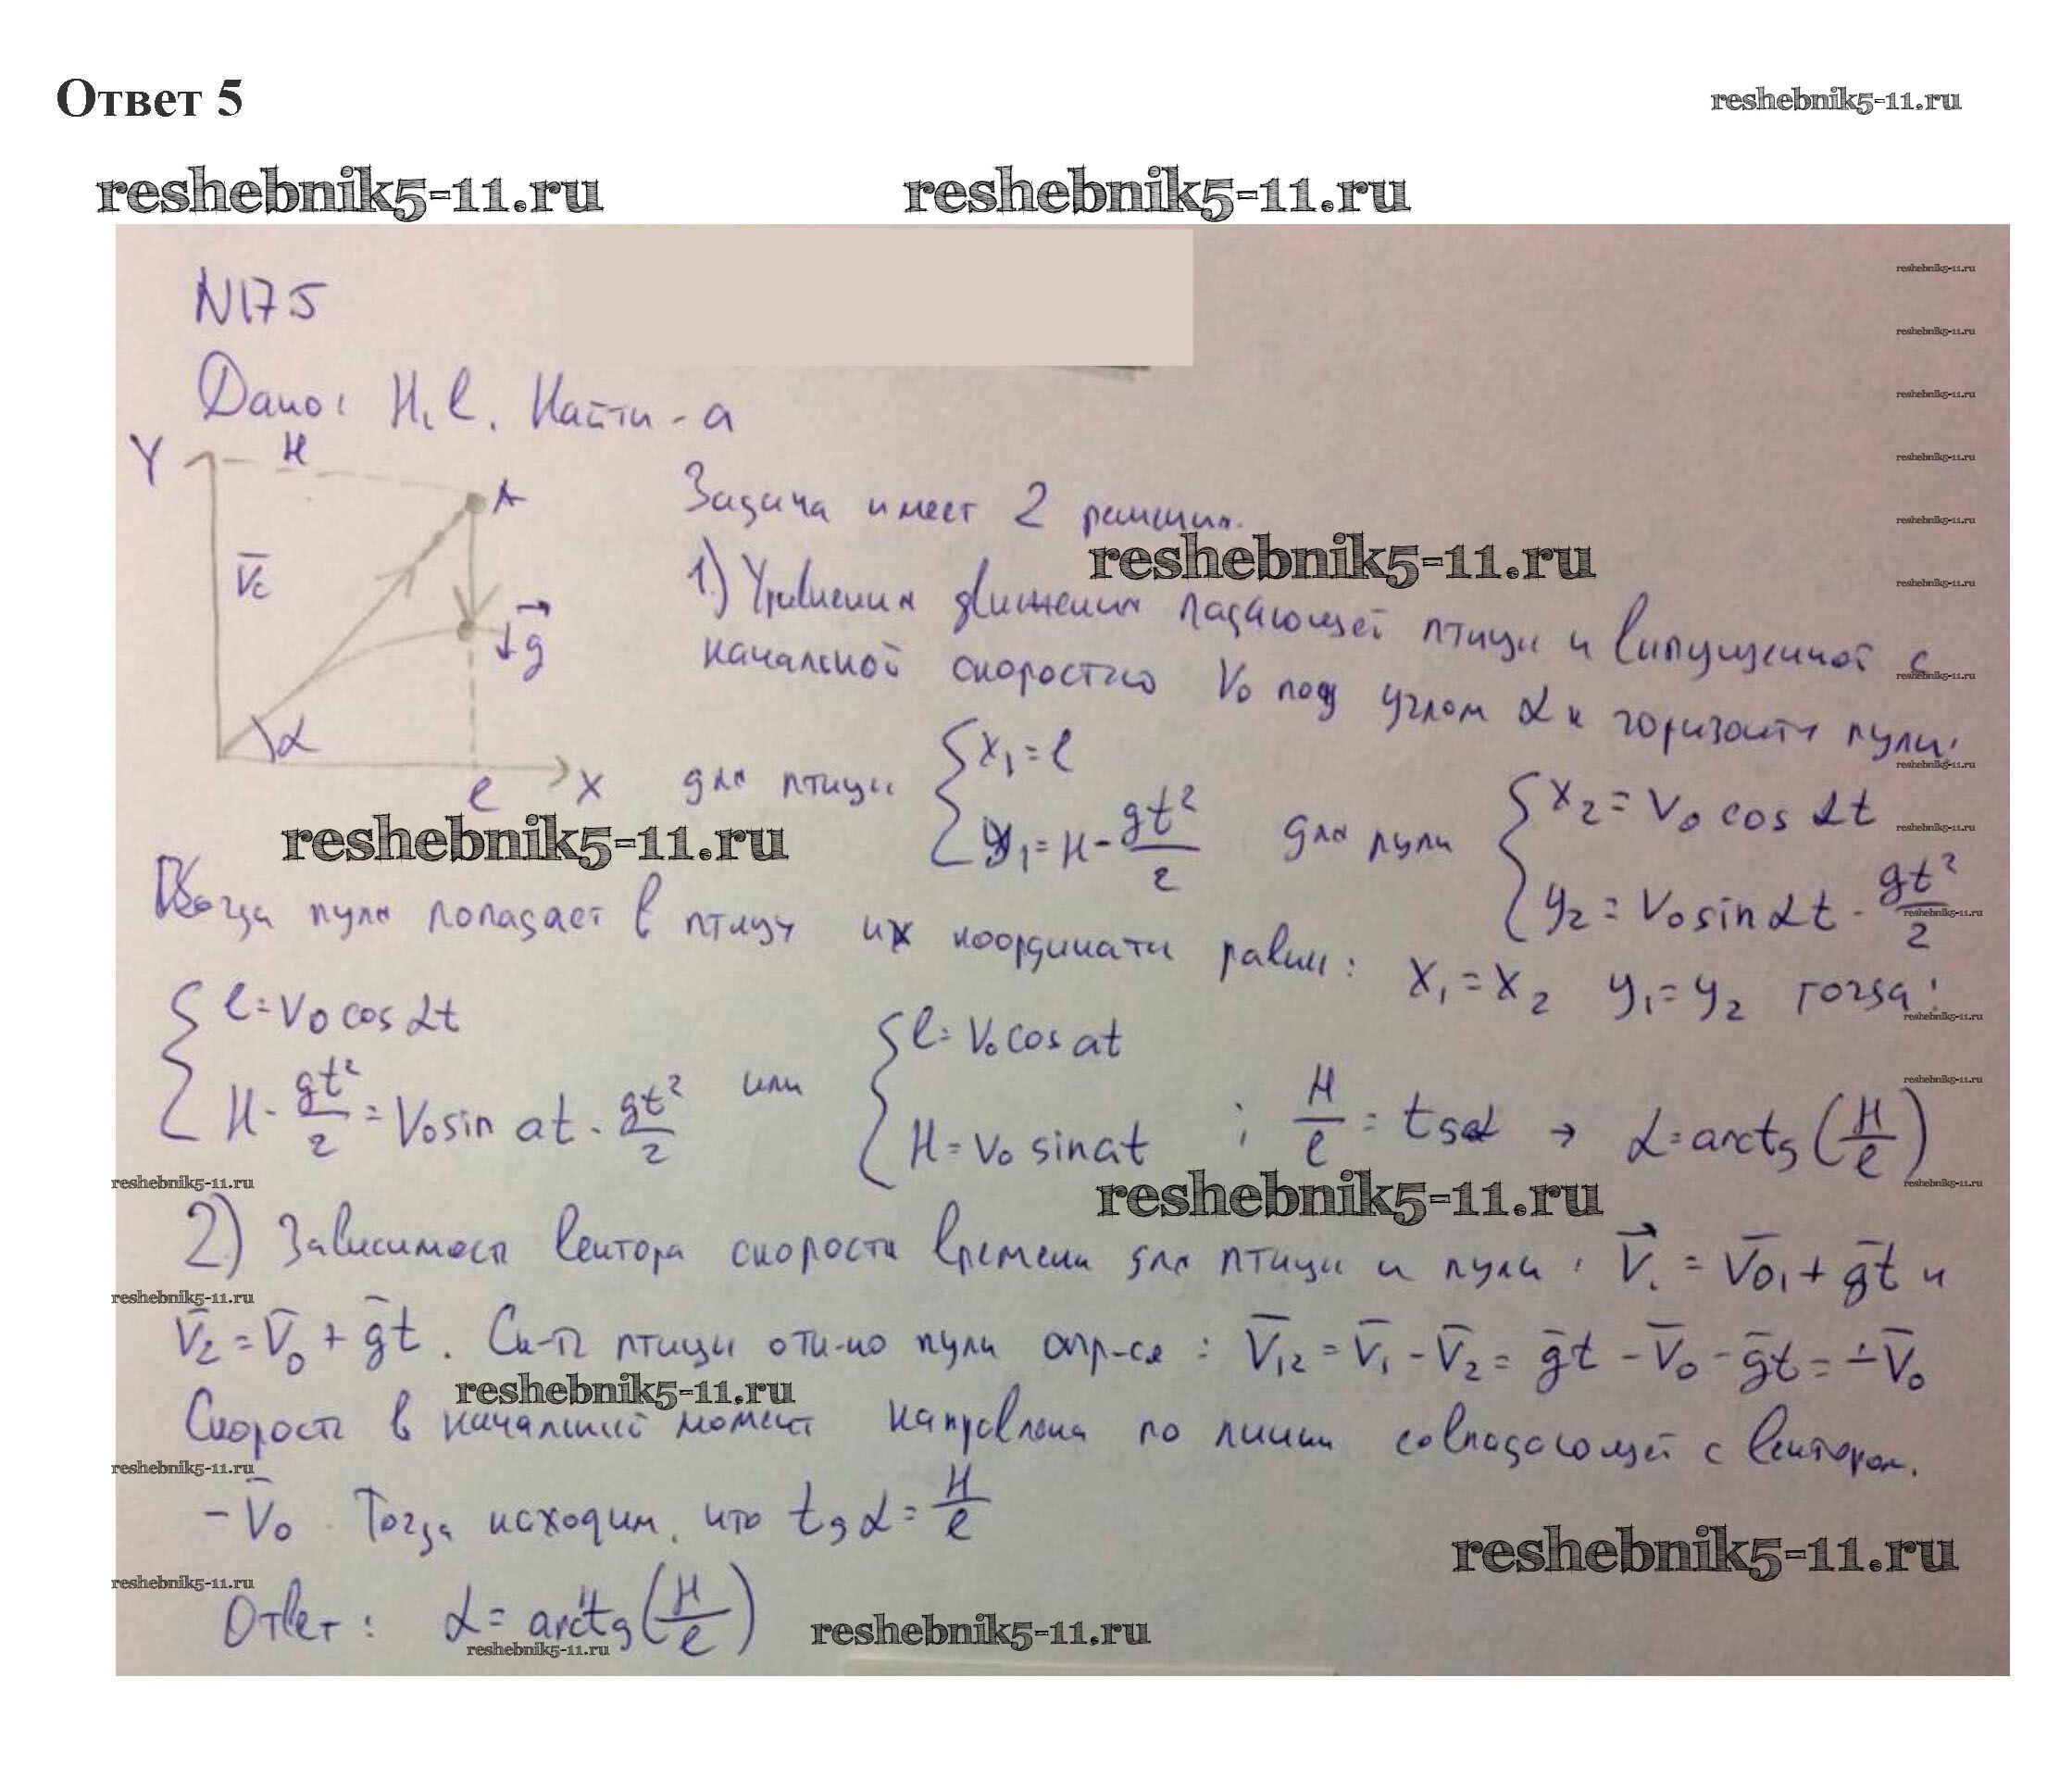 Ответ 5
reshebnik5-11.ru
reshebnik5-11.ru reshebnik5-11.ru
N175
Дано: H, l. Найти - a
Y H A
V̄c
↓g⃗
α
l X
Задача имеет 2 решения.
reshebnik5-11.ru
1.) Уравнения движения падающей птицы и выпущенной с
начальной скоростью V₀ под углом α к горизонту пули:
для птицы { x₁ = l
y₁ = H - gt²/2
для пули { x₂ = V₀ cos αt
y₂ = V₀ sin αt - gt²/2
reshebnik5-11.ru
Когда пуля попадает в птицу их координаты равны: x₁ = x₂ y₁ = y₂ тогда:
{ l = V₀ cos αt
H - gt²/2 = V₀ sin at - gt²/2
или { l = V₀ cos at
H = V₀ sin at
; H/l = tgα → α = arctg (H/l)
reshebnik5-11.ru
2) Зависимость вектора скорости времени для птицы и пули: V⃗. = V̄₀₁ + ḡt и
V̄₂ = V̄₀ + ḡt. Ск-ть птицы отн-но пули опр-ся: V̄₁₂ = V̄₁ - V̄₂ = ḡt - V̄₀ - ḡt = -V̄₀
reshebnik5-11.ru
Скорость в начальный момент направлена по линии совпадающей с вектором.
-V̄₀. Тогда находим, что tgα = H/l
reshebnik5-11.ru
Ответ: α = arctg (H/l)
reshebnik5-11.ru
reshebnik5-11.ru